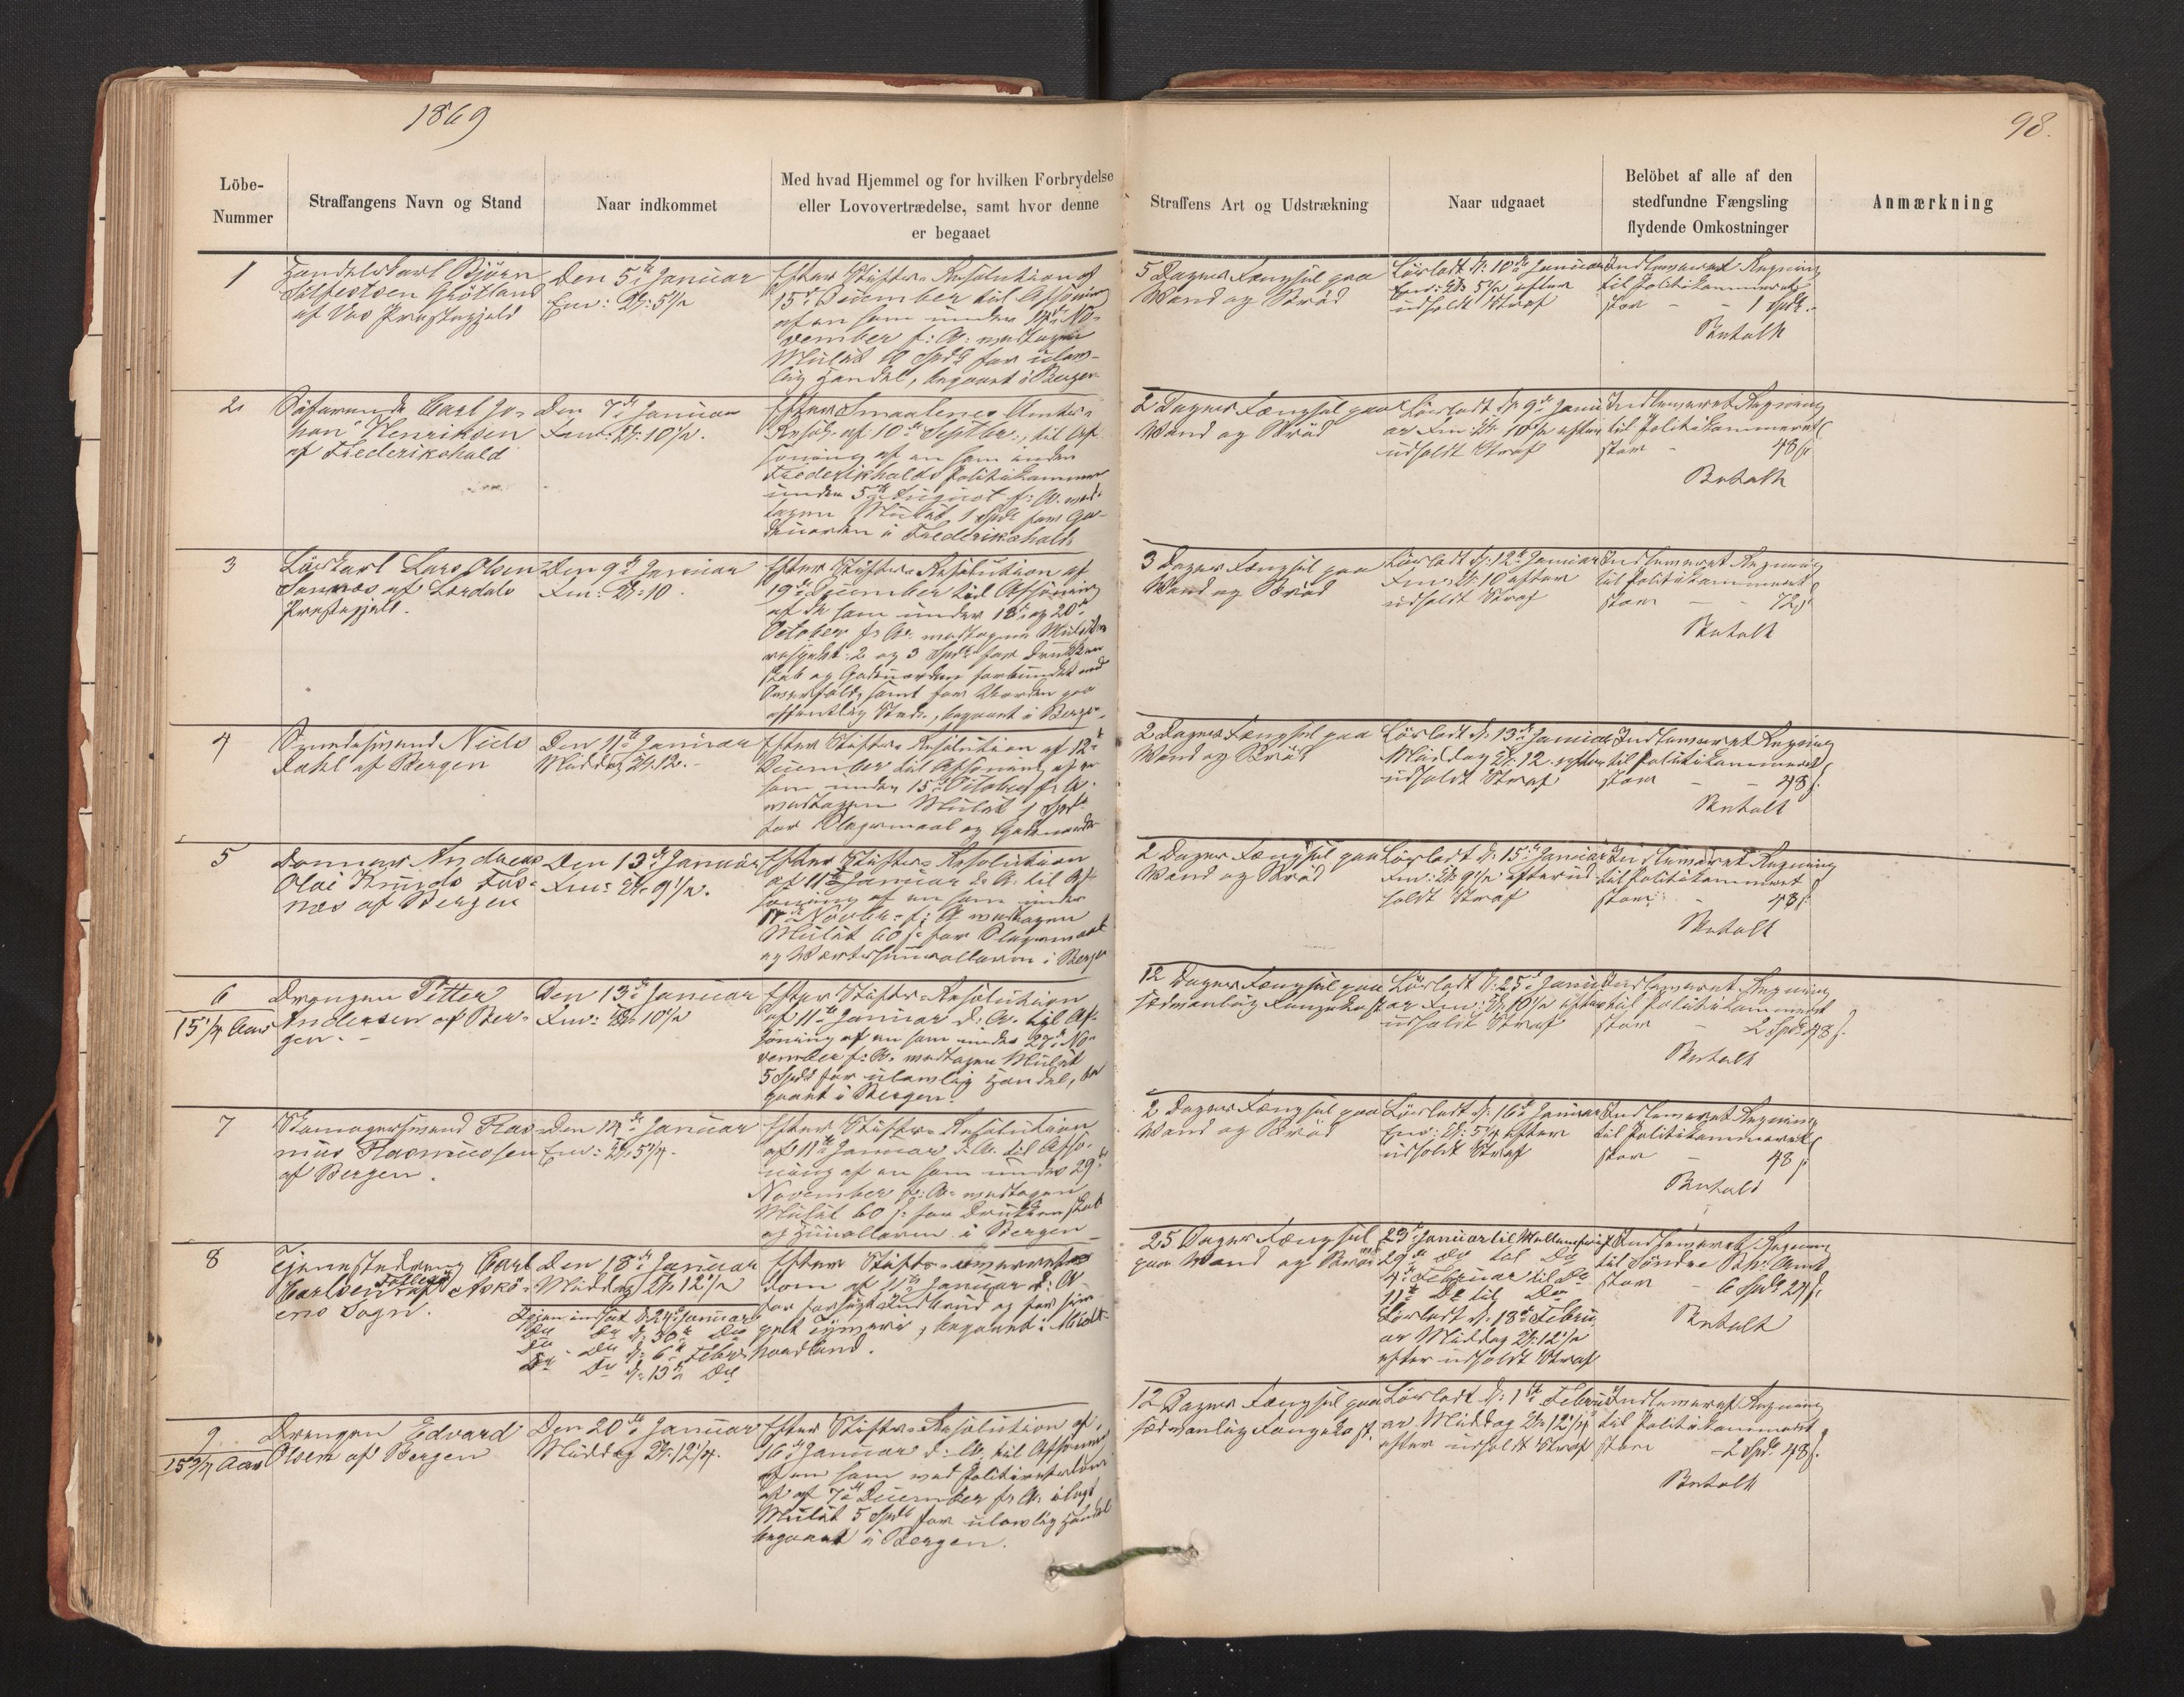 1869
98.
Löbe-
Nummer
Straffangens Navn og Stand
Naar indkommet
Med hvad Hjemmel og for hvilken Forbrydelse
eller Lovovertrædelse, samt hvor denne
er begaaet
Straffens Art og Udstrækning
Naar udgaaet
Belöbet af alle af den
stedfundne Fængsling
flydende Omkostninger
Anmærkning
1
Handelskarl Björn
Sölfestsen Grötland
af Vos Præstegjeld
Den 5te Januar
Em: Kl: 5½
Efter Stifts-Resolution af
15de December til Afsoning
af en som under 14de No-
vember f: A: modtagen
Mulct 10 Spd for ulov-
lig Handel, begaaet i Bergen
5 Dages Fængsel paa
Vand og Bröd
Lösladt d: 10de Januar
Em: Kl: 5½ efter
udholdt Straf
Indleveret Regning
til Politikammeret
stor - - 1 Spd.
Betalt
2
Söfarende Carl Jo-
han Henriksen
af Frederikshald
Den 7de Januar
Fm: Kl: 10½.
Efter Smaalenes Amts-
Resol: af 10de Septbr: til Af-
soning af en som under
Frederikshalds Politikammer
under 5te August f: A. mod-
tagen Mulct 1 Spd for Ga-
deuorden i Frederikshald
2 Dages Fængsel paa
Vand og Bröd
Lösladt d: 9de Janu-
ar Fm: Kl: 10½ efter
udholdt Straf
Indleveret Regning
til Politikammeret
stor - 48 s
Betalt
3
Löskarl Lars Olsen
Sannes af Lærdals
Præstegjeld.
Den 9de Januar
Fm: Kl: 10.
Efter Stifts-Resolution af
19de December til Afsoning
af de som under 18de og 20de
October f: A: modtagne Mulcter
respekt: 2 og 3 Spd for Drukken-
skab og Gadeuorden forbundet med
Overfald, samt for Uorden paa
offentlig Sted, begaaet i Bergen.
3 Dages Fængsel paa
Vand og Bröd
Lösladt d: 12te Januar
Fm: Kl: 10 efter
udholdt Straf
Indleveret Regning
til Politikammeret
stor - - 72 s
Betalt
4
Svendesmand Niels
Dahl af Bergen
Den 11te Januar
Middag Kl. 12.
Efter Stifts-Resolution af 12te
December til Afsoning af en
som under 15de October f: A:
modtagen Mulct 1 Spd
for Slagsmaal og Gadeuorden
2 Dages Fængsel paa
Vand og Bröd
Lösladt d: 13de Januar
Middag Kl: 12 efter
udholdt Straf
Indleveret Regning
til Politikammeret
stor - - 48 s
Betalt
5
Andreas
Olai Knuds
nes af Bergen
Den 13de Januar
Fm: Kl: 9½.
Efter Stifts-Resolution
af 11te Januar d: A: til Af-
soning af en som under
Novbr: f: A modtagen
Mulct 60 s for Slagsmaal
og Værtshuusallarm i Bergen
2 Dages Fængsel paa
Vand og Bröd
Lösladt d: 15de Januar
Fm: Kl: 9½ efter ud-
holdt Straf
Indleveret Regning
til Politikammeret
stor - 48 s
Betalt
6
15¼ Aar
Drengen Petter
Andersen af Ber-
gen.
Den 13de Januar
Fm: Kl: 10½
Efter Stifts-Resolution
af 11te Januar d: A. til Af-
soning af en som under 27de No-
vember f: A: modtagen Mulct
5 Spd for ulovlig Handel, be-
gaaet i Bergen.
12 Dages Fængsel paa
sædvanlig Fangekost
Lösladt d: 25de Janu-
ar Fm: Kl: 10½ efter
udholdt Straf
Indleveret Regning
til Politikammeret
stor - 2 Spd 48 s.
Betalt
7
Skomagersvend Ras-
mus Rasmussen
af Bergen.
Den 14de Januar
Em: Kl: 5¼.
Efter Stifts-Resolution
af 11te Januar d: A. til Afso-
ning af en som under 29de
November f: A: modtagen
Mulct 60 s: for Drukkenskab
og Huusallarm i Bergen
2 Dages Fængsel paa
Vand og Bröd
Lösladt d: 16de Januar
Em: Kl: 5¼ efter
udholdt Straf
Indleveret Regning
til Politikammeret
stor - 48 s
Betalt
8
Tjenestedreng Carl
Carlsen af Askö-
ens Sogn.
Den 18de Januar
Middag Kl: 12½
Igjen indsat d: 24de Januar
Do Do d: 30te Do
Do - Do d: 6te Febr.
Do Do d: 13de Do
Efter Stifts-
dom af 11te Januar d: A.
for forsögt Indbrud og for sim-
pelt Tyveri, begaaet i Nord-
hordland.
25 Dages Fængsel
paa Vand og Bröd
23de Januar til Mellemfrist
29de Do til Do
4de Februar til Do
11te Do til Do
Lösladt d: 18de Febru-
ar Middag Kl: 12½
efter udholdt Straf
Indleveret Regning
til Söndre Bhs: Amt
stor - 6 Spd 24 s
Betalt
9
15¾ Aar
Drengen Edvard
Olsen af Bergen
Den 20de Januar
Middag Kl: 12¼.
Efter Stifts-Resolution af
16de Januar d: A: til Afsoning
af en som ved Politiretsdom
af 7de December f: A: ilagt
Mulct 5 Spd for ulovlig Handel
begaaet i Bergen.
12 Dages Fængsel paa
sædvanlig Fangekost.
Lösladt d: 1ste Febru-
ar Middag Kl: 12¼
efter udholdt Straf
Indleveret Regning
til Politikammeret
stor - 2 Spd. 48 s.
Betalt